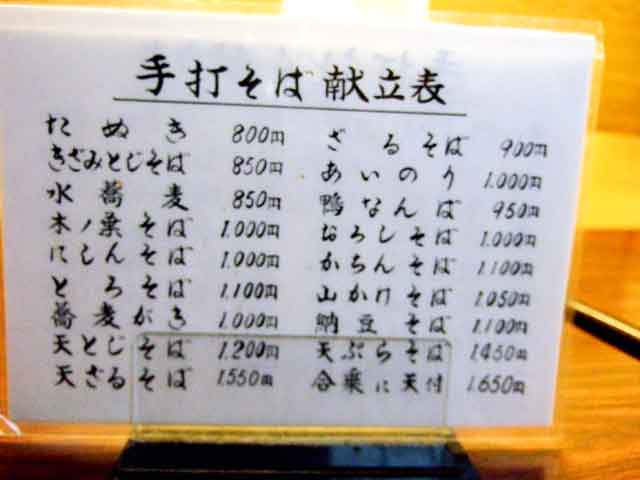 手打そば献立表
たぬき 800円
きざみとじそば 850円
水蕎麦 850円
木ノ葉そば 1.000円
にしんそば 1.000円
とろそば 1.100円
蕎麦がき 1.000円
天とじそば 1.200円
天ざるそば 1.550円
ざるそば 900円
あいのり 1.000円
鴨なんば 950円
おろしそば 1.000円
かちんそば 1.100円
山かけそば 1.050円
納豆そば 1.100円
天ぷらそば 1.450円
合乗に天付 1.650円